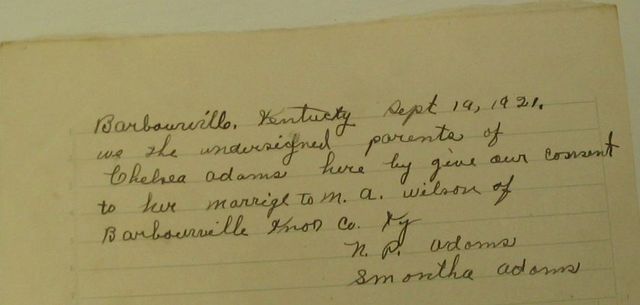 Barbourvillo, Kentucky Sept 19, 1921.
we the undersigned parents of
Chelsea adams here by give our consent
to her marrige to M. A. wilson of
Barbourville Knox Co. Ky
N. P. adams
Smontha adams